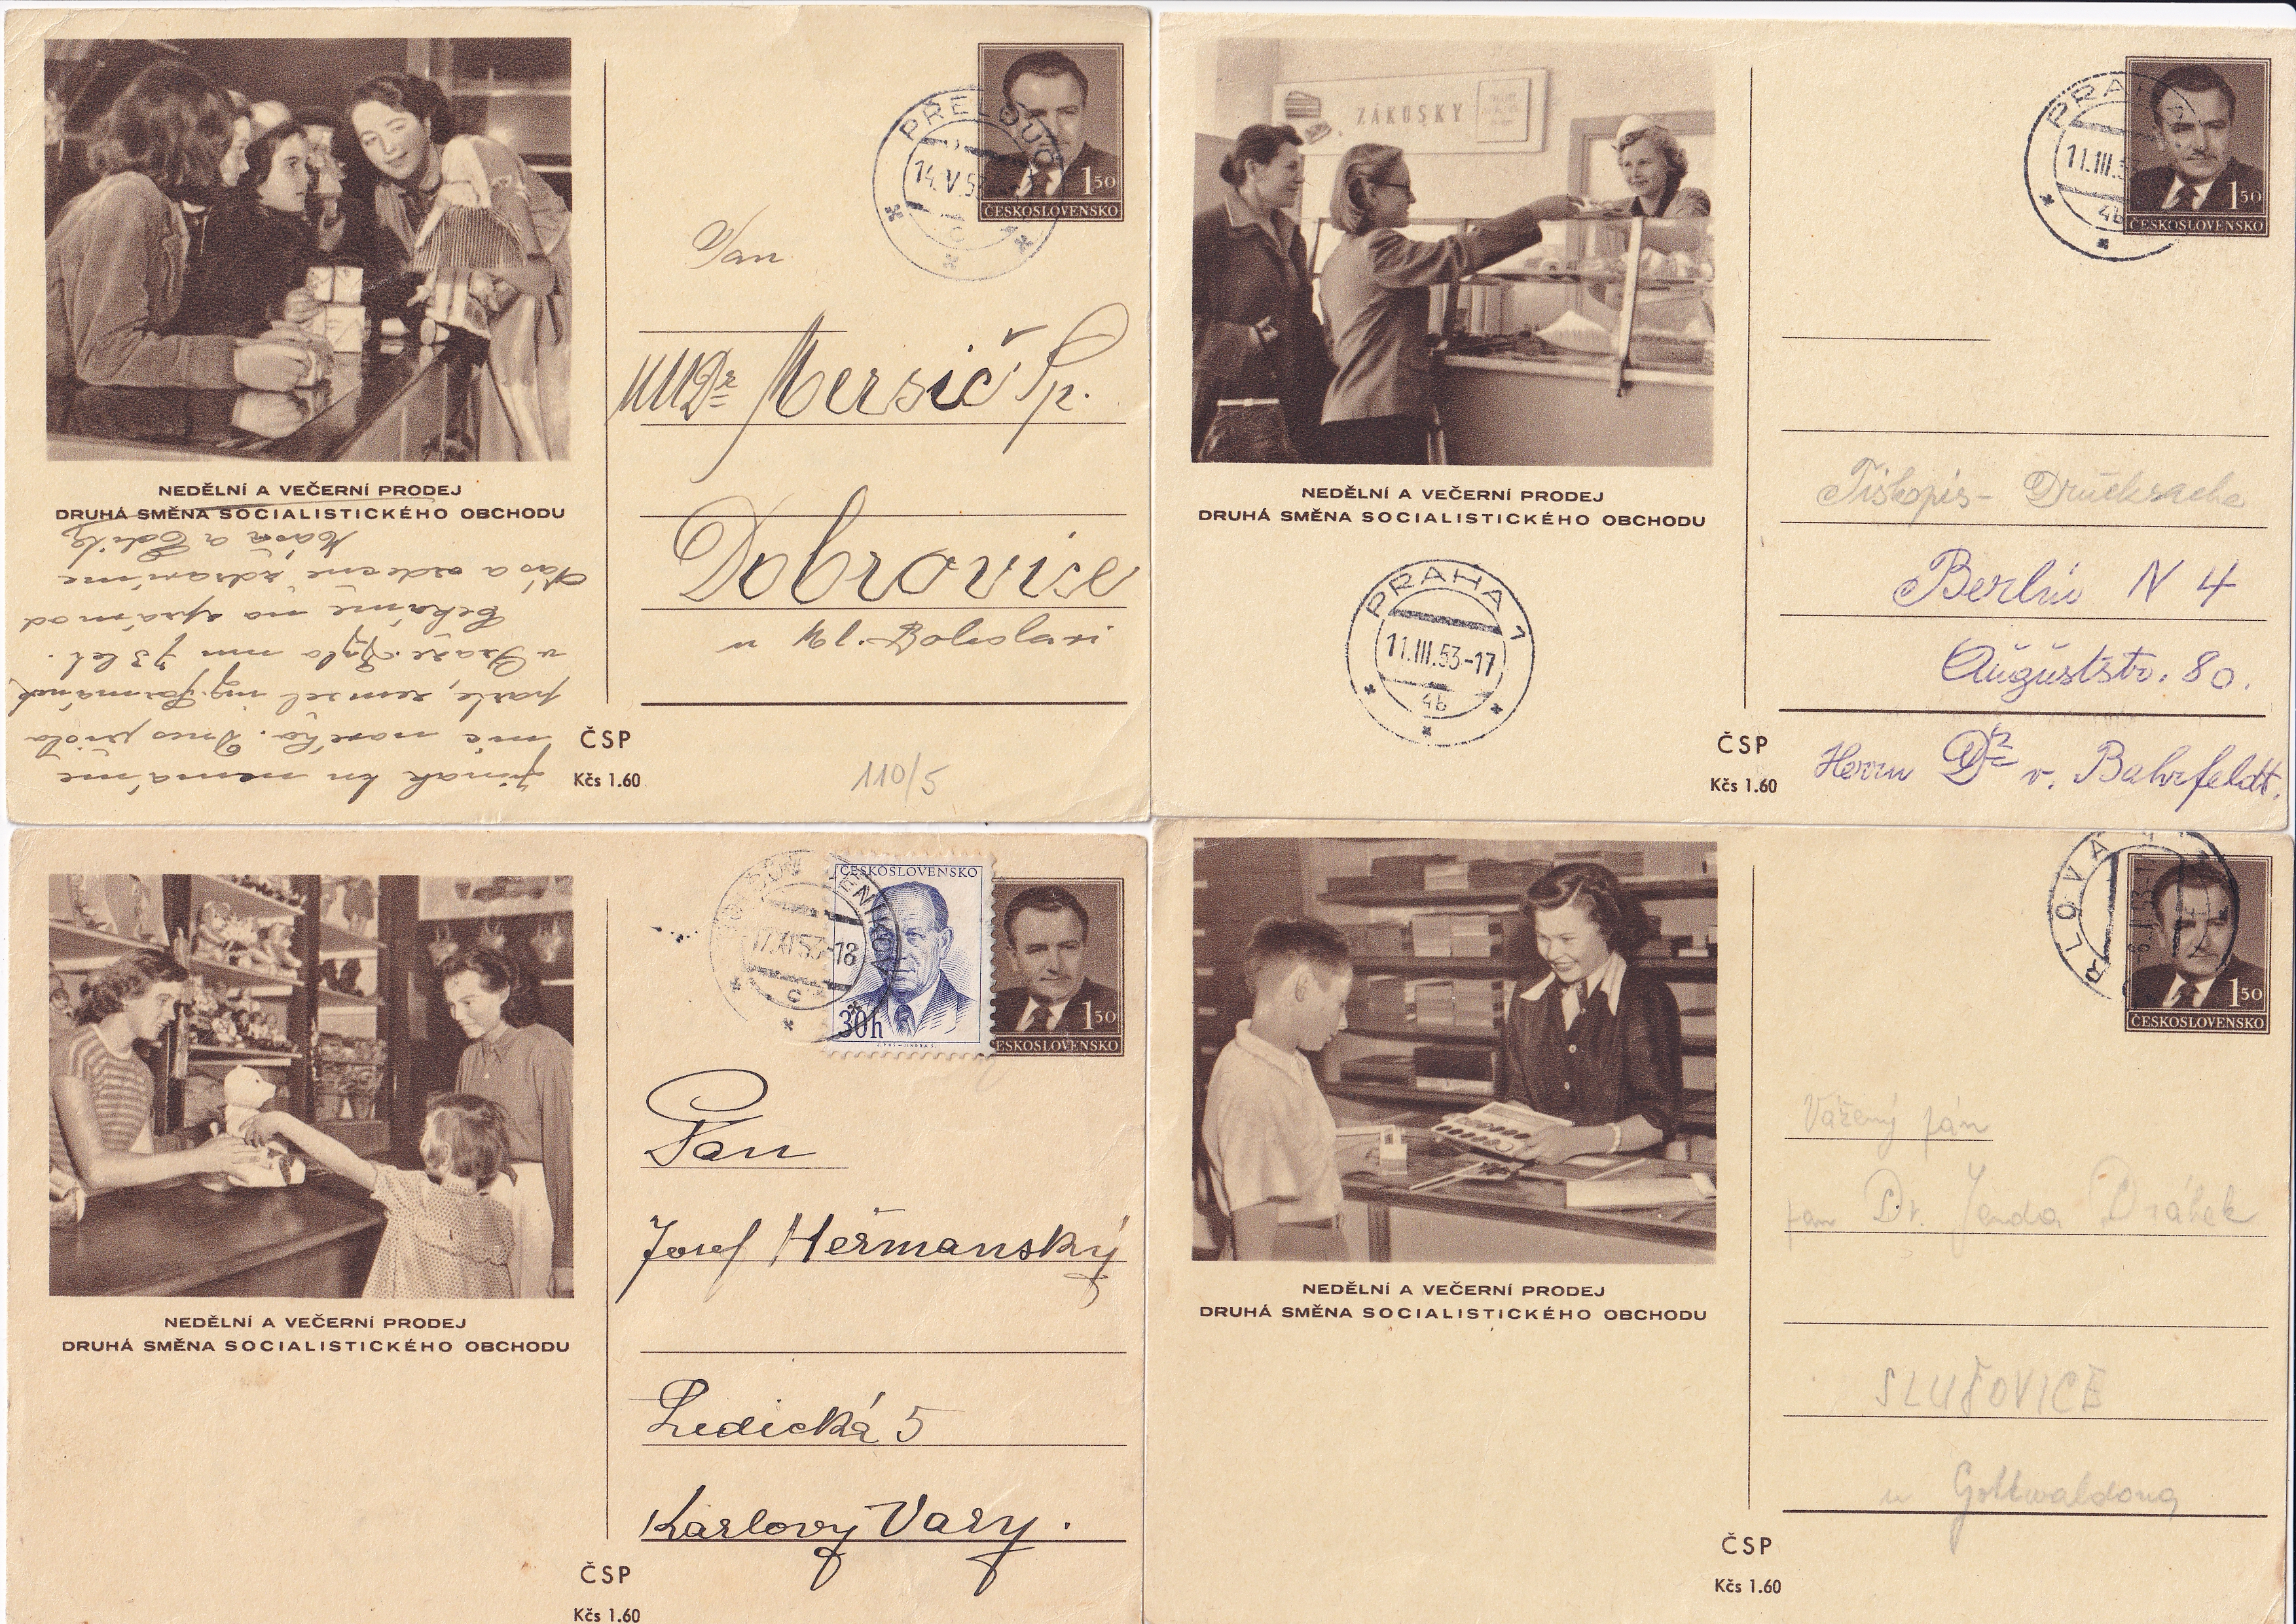 PŘELOUČ 1
14.V.5
C
1 50
ČESKOSLOVENSKO
Pan
MUDr Mersič Sp.
Dobrovice
u Ml. Boleslavi
NEDĚLNÍ A VEČERNÍ PRODEJ
DRUHÁ SMĚNA SOCIALISTICKÉHO OBCHODU
Jinak tu nemáme
nic nového. Dnes přišla
parte, zemřel ing.
v Praze. Bylo mu 73 let.
Čekáme na zprávu od
Vás a srdečně zdravíme
ČSP
Kčs 1.60
110/5
ZÁKUSKY
PRAHA
11.III.5
4b
1 50
ČESKOSLOVENSKO
NEDĚLNÍ A VEČERNÍ PRODEJ
DRUHÁ SMĚNA SOCIALISTICKÉHO OBCHODU
PRAHA 1
11.III.53-17
4b
Tiskopis - Drucksache
Berlin N 4
Auguststr. 80.
Herrn Dr v. Bahrfeldt.
ČSP
Kčs 1.60
17.XI.53-18
C
ČESKOSLOVENSKO
30h
1 50
ESKOSLOVENSKO
NEDĚLNÍ A VEČERNÍ PRODEJ
DRUHÁ SMĚNA SOCIALISTICKÉHO OBCHODU
Pan
Josef Heřmanský
Ledická 5
Karlovy Vary.
ČSP
Kčs 1.60
RLOVA
1 50
ČESKOSLOVENSKO
NEDĚLNÍ A VEČERNÍ PRODEJ
DRUHÁ SMĚNA SOCIALISTICKÉHO OBCHODU
Vážený pán
pan Dr. Jenda Drábek
SLUŠOVICE
u Gottwaldova
ČSP
Kčs 1.60